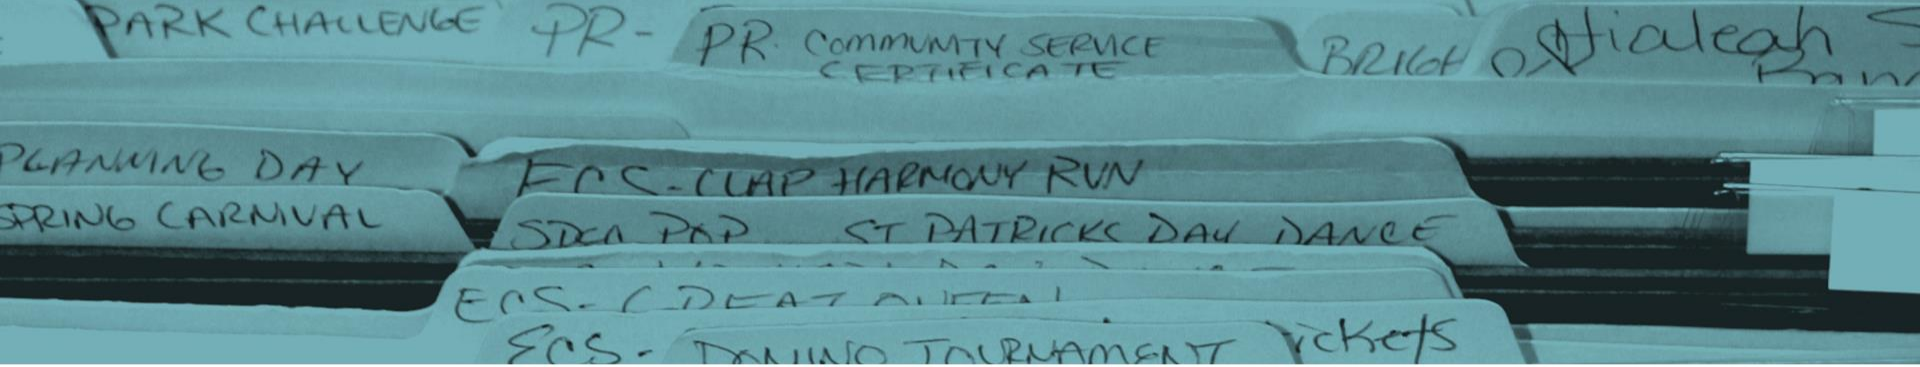 PARK CHALLENGE
PR-
PR. COMMUNITY SERVICE
CERTIFICATE
BRIGH
Hialeah
PLANNING DAY
ECS-CLAP HARMONY RUN
SPRING CARNIVAL
ST PATRICKS DAY DANCE
ECS- GREAT QUEEN
ECS-
DOMINO TOURNAMENT
ickets